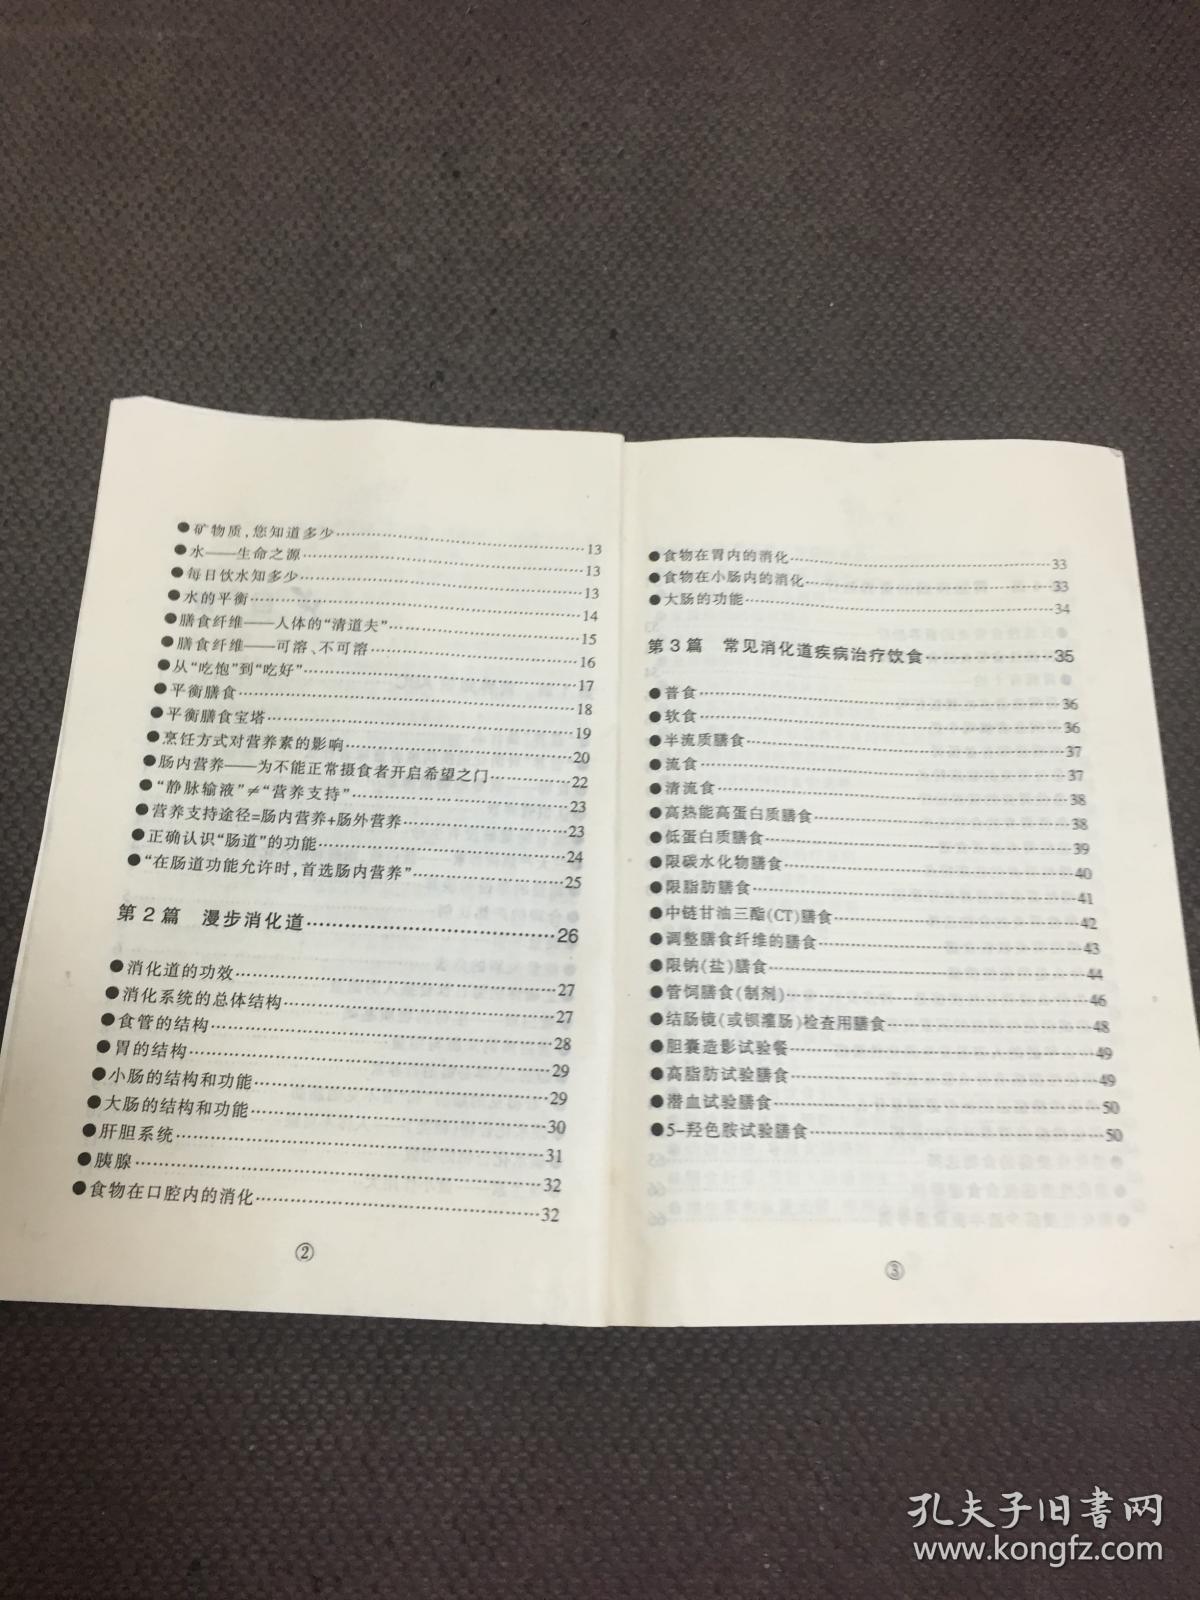 ●矿物质，您知道多少……13
●水——生命之源……13
●每日饮水知多少……13
●水的平衡……14
●膳食纤维——人体的“清道夫”……15
●膳食纤维——可溶、不可溶……16
●从“吃饱”到“吃好”……17
●平衡膳食……18
●平衡膳食宝塔……19
●烹饪方式对营养素的影响……20
●肠内营养——为不能正常摄食者开启希望之门……22
●“静脉输液”≠“营养支持”……23
●营养支持途径=肠内营养+肠外营养……23
●正确认识“肠道”的功能……24
●“在肠道功能允许时，首选肠内营养”……25
第2篇 漫步消化道……26
●消化道的功效……27
●消化系统的总体结构……27
●食管的结构……28
●胃的结构……29
●小肠的结构和功能……29
●大肠的结构和功能……30
●肝胆系统……31
●胰腺……32
●食物在口腔内的消化……32
②
●食物在胃内的消化……33
●食物在小肠内的消化……33
●大肠的功能……34
第3篇 常见消化道疾病治疗饮食……35
●普食……36
●软食……36
●半流质膳食……37
●流食……37
●清流食……38
●高热能高蛋白质膳食……38
●低蛋白质膳食……39
●限碳水化物膳食……40
●限脂肪膳食……41
●中链甘油三酯(CT)膳食……42
●调整膳食纤维的膳食……43
●限钠(盐)膳食……44
●管饲膳食(制剂)……46
●结肠镜(或钡灌肠)检查用膳食……48
●胆囊造影试验餐……49
●高脂肪试验膳食……49
●潜血试验膳食……50
●5-羟色胺试验膳食……50
③
孔夫子旧书网
www.kongfz.com